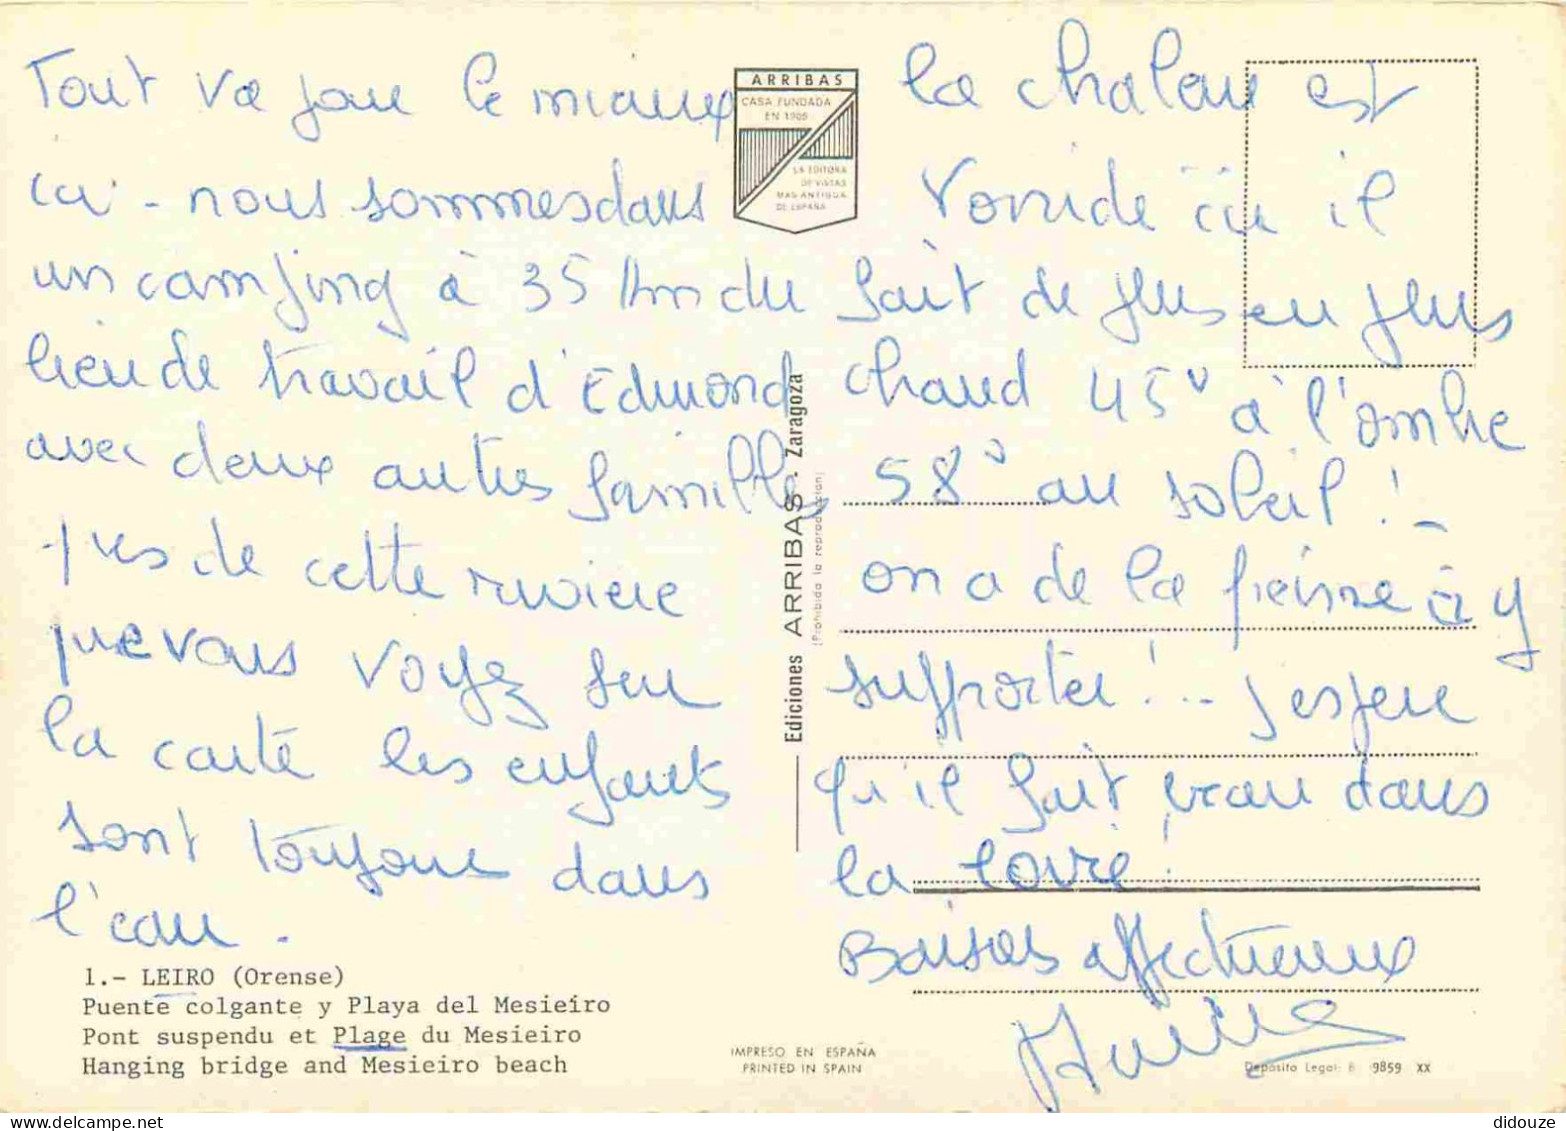 Tout va pour le mieux
ici - nous sommes dans
un camping à 35 Km du
lieu de travail d'Edmond
avec deux autres familles
près de cette rivière
que vous voyez sur
la carte les enfants
sont toujours dans
l'eau.
1.- LEIRO (Orense)
Puente colgante y Playa del Mesieiro
Pont suspendu et Plage du Mesieiro
Hanging bridge and Mesieiro beach
ARRIBAS
CASA FUNDADA
EN 1905
LA EDITORA
DE VISTAS
MAS ANTIGUA
DE ESPAÑA
Ediciones ARRIBAS - Zaragoza
(Prohibida la reproducción)
IMPRESO EN ESPAÑA
PRINTED IN SPAIN
la chaleur est
torride ici il
fait de plus en plus
chaud 45° à l'ombre
58° au soleil ! -
on a de la peine à y
supporter ! .. J'espère
qu'il fait beau dans
la Loire !
Baisers affectueux
Depósito Legal: B. 9859 XX
didouze